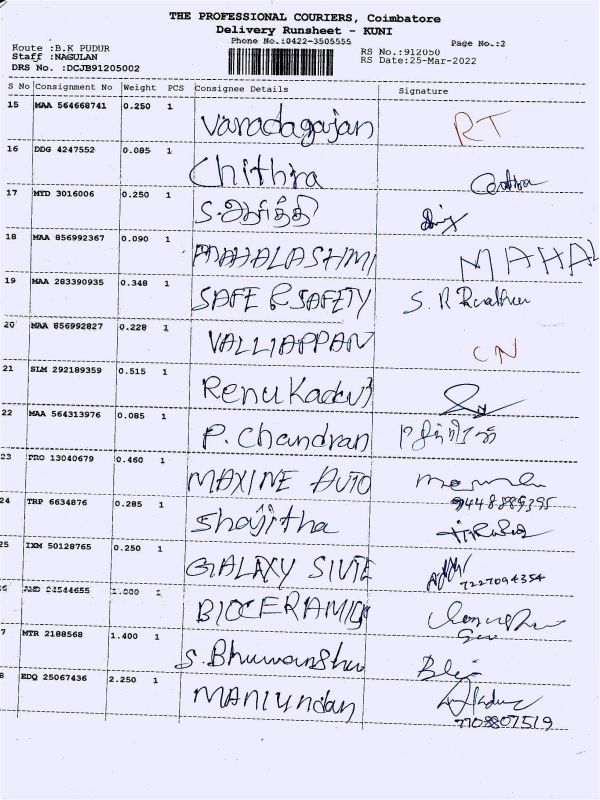 THE PROFESSIONAL COURIERS, Coimbatore
Delivery Runsheet - KUNI
Phone No.:0422-3505555
Page No.:2
Route :B.K PUDUR
RS No.:912050
Staff :NAGULAN
RS Date:25-Mar-2022
DRS No. :DCJB91205002
S No Consignment No Weight PCS Consignee Details Signature
15 MAA 564668741 0.250 1 Varadagajan RT
16 DDG 4247552 0.085 1 Chithra
17 MYD 3016006 0.250 1 S.
18 MAA 856992367 0.090 1 MAHALASHMI MAHAL
19 MAA 283390935 0.348 1 SAFE & SAFETY S. R
20 MAA 856992827 0.228 1 VALLIAPPAN CN
21 SLM 292189359 0.515 1 Renukadevi
22 MAA 564313976 0.085 1 P. Chandran
23 PRO 13040679 0.460 1 MAXINE AUTO
9448889395
24 TRP 6634876 0.285 1 Shajitha
25 IXM 50128765 0.250 1 GALAXY SIVTE
7227094354
AMD 24544655 1.000 1 BIOCERAMIC
7 MTR 2188568 1.400 1 S. Bhuwanshu
8 EDQ 25067436 2.250 1 Maniyndan
7708807519